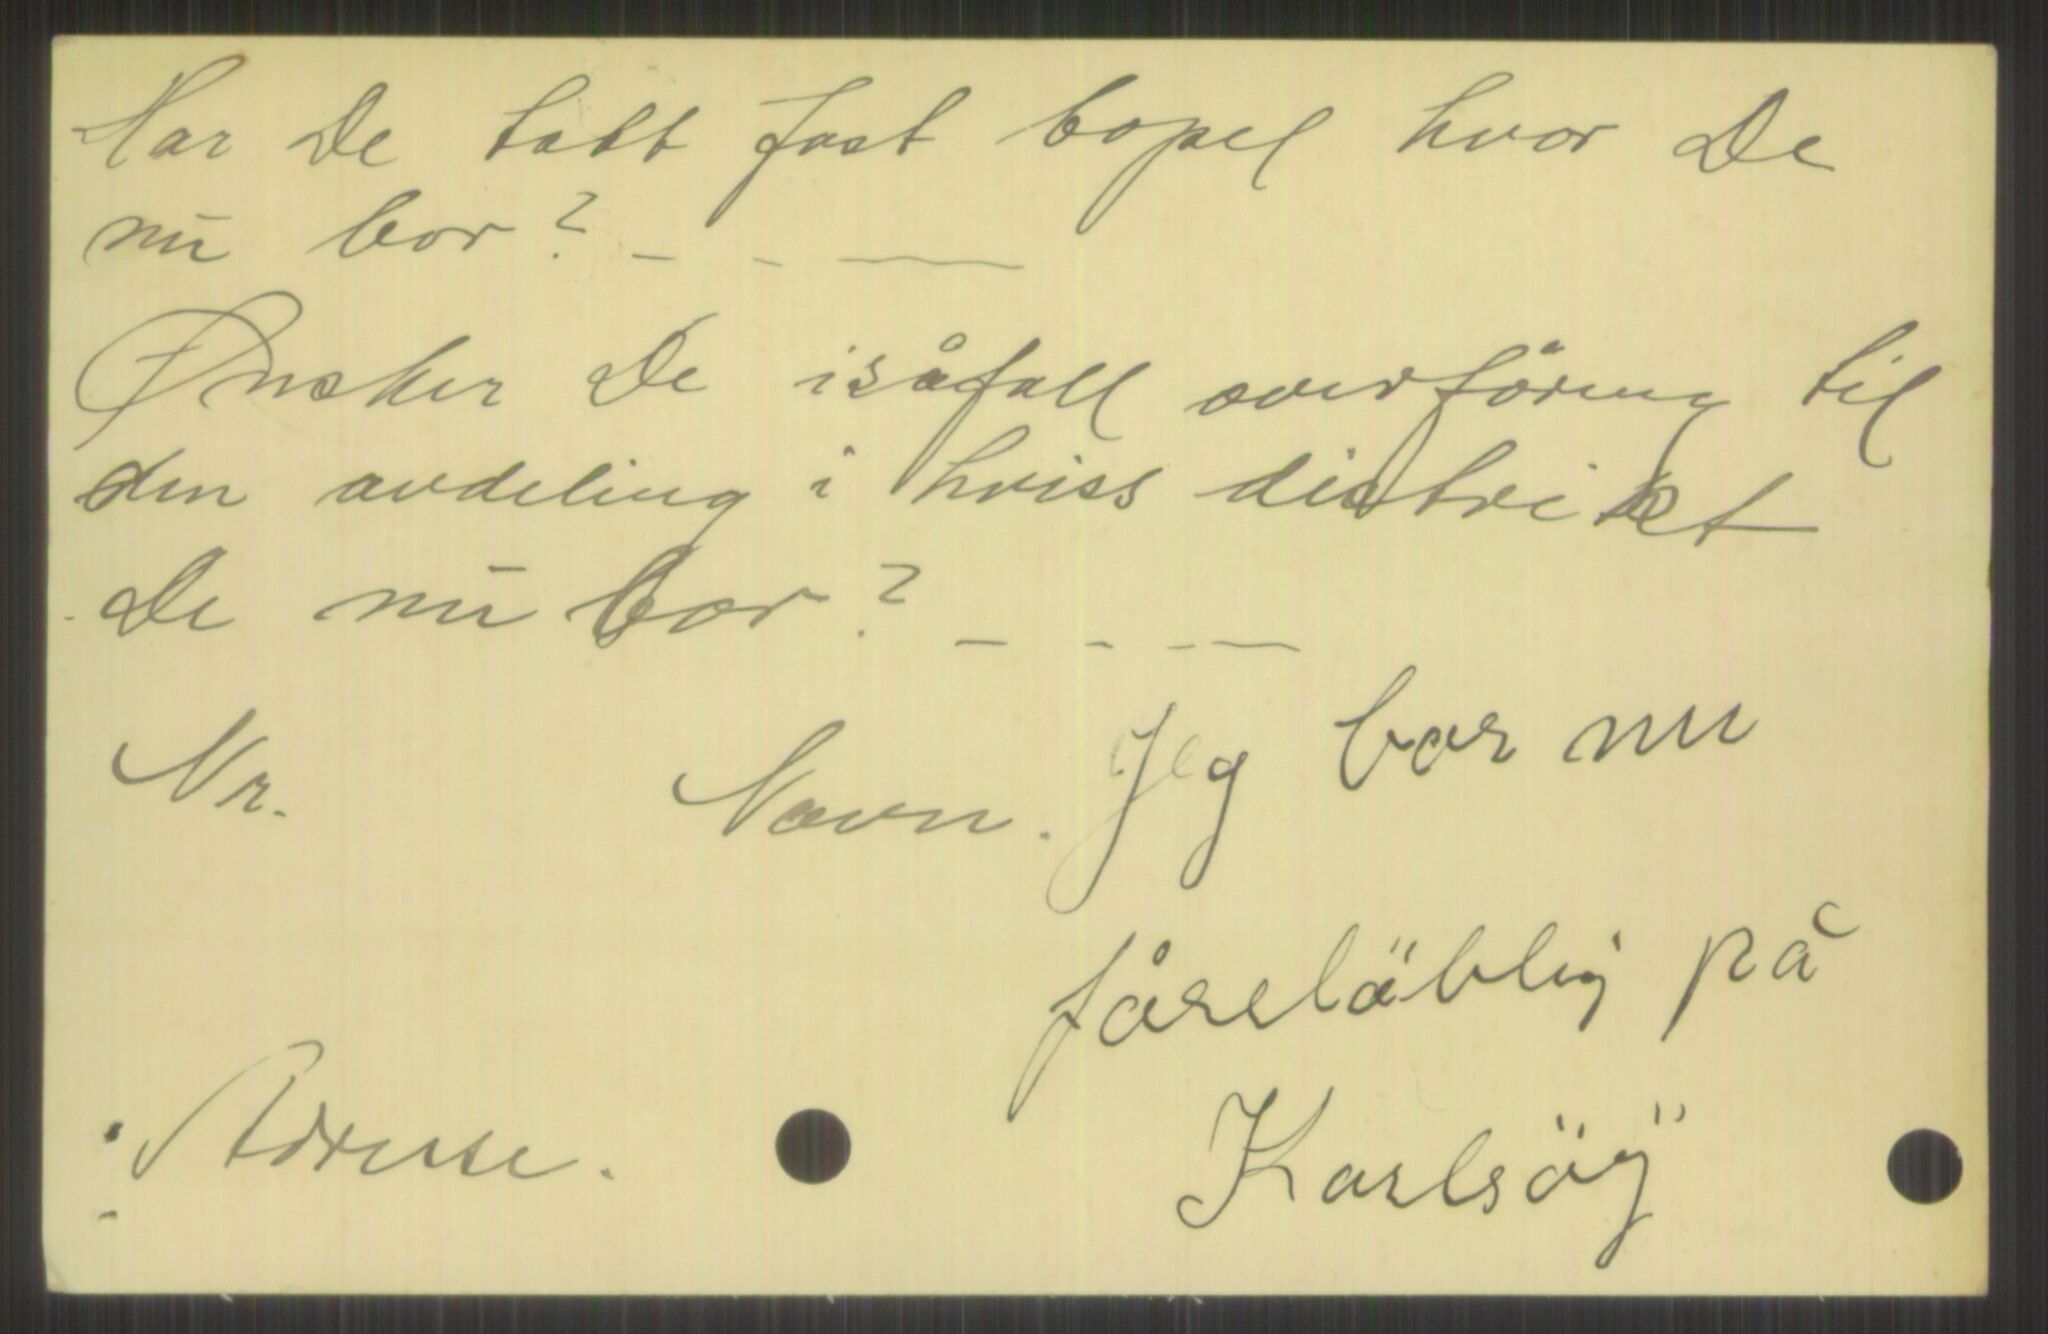 Har De tatt fast bopel hvor De
nu bor? - - —
Ønsker De isåfall overföring til
den avdeling i hviss distrikt
De nu bor? - - - —
Nr. Navn. Jeg bor nu
fåreläblig på
Karlsöy
Adresse.